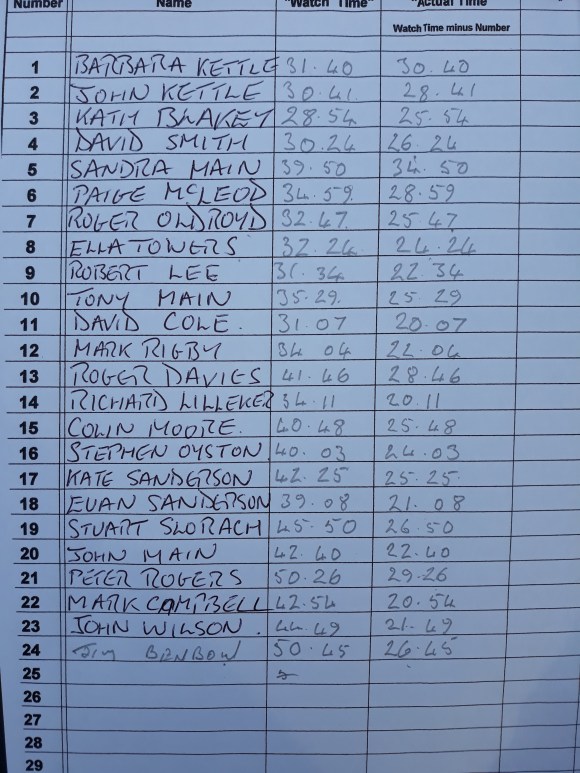 Number Name "Watch Time" "Actual Time"
Watch Time minus Number
1 BARBARA KETTLE 31.40 30.40
2 JOHN KETTLE 30.41 28.41
3 KATH BLAKEY 28.54 25.54
4 DAVID SMITH 30.24 26.24
5 SANDRA MAIN 39.50 34.50
6 PAIGE MCLEOD 34.59 28.59
7 ROGER OLDROYD 32.47 25.47
8 ELLA TOWERS 32.24 24.24
9 ROBERT LEE 31.34 22.34
10 TONY MAIN 35.29 25 29
11 DAVID COLE. 31.07 20.07
12 MARK RIGBY 34 04 22.04
13 ROGER DAVIES 41.46 28.46
14 RICHARD LILLEKER 34.11 20.11
15 COLIN MOORE. 40.48 25.48
16 STEPHEN OYSTON 40.03 24.03
17 KATE SANDERSON 42.25 25.25
18 EUAN SANDERSON 39.08 21.08
19 STUART SLORACH 45.50 26.50
20 JOHN MAIN 42.40 22.40
21 PETER ROGERS 50.26 29.26
22 MARK CAMPBELL 42.54 20.54
23 JOHN WILSON. 44.49 21.49
24 JIM BENBOW 50.45 26.45
25
26
27
28
29